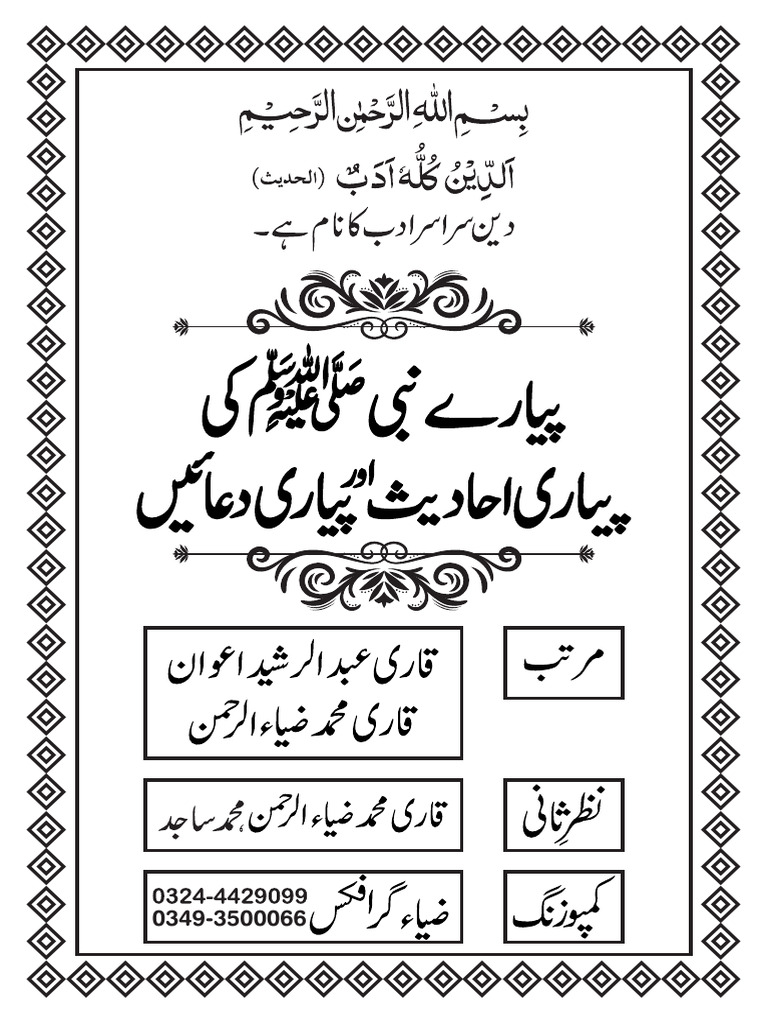 بِسْمِ اللهِ الرَّحْمٰنِ الرَّحِيْمِ
اَلدِّيْنُ كُلُّهٗ اَدَبٌ (الحدیث)
دین سراسر ادب کا نام ہے۔
پیارے نبی صَلَّى اللهُ عَلَيْهِ وَسَلَّم کی
پیاری احادیث اور پیاری دعائیں
مرتب
قاری عبد الرشید اعوان
قاری محمد ضیاء الرحمن
نظرِ ثانی
قاری محمد ضیاء الرحمن، محمد ساجد
کمپوزنگ
ضیاء گرافکس
0324-4429099
0349-3500066